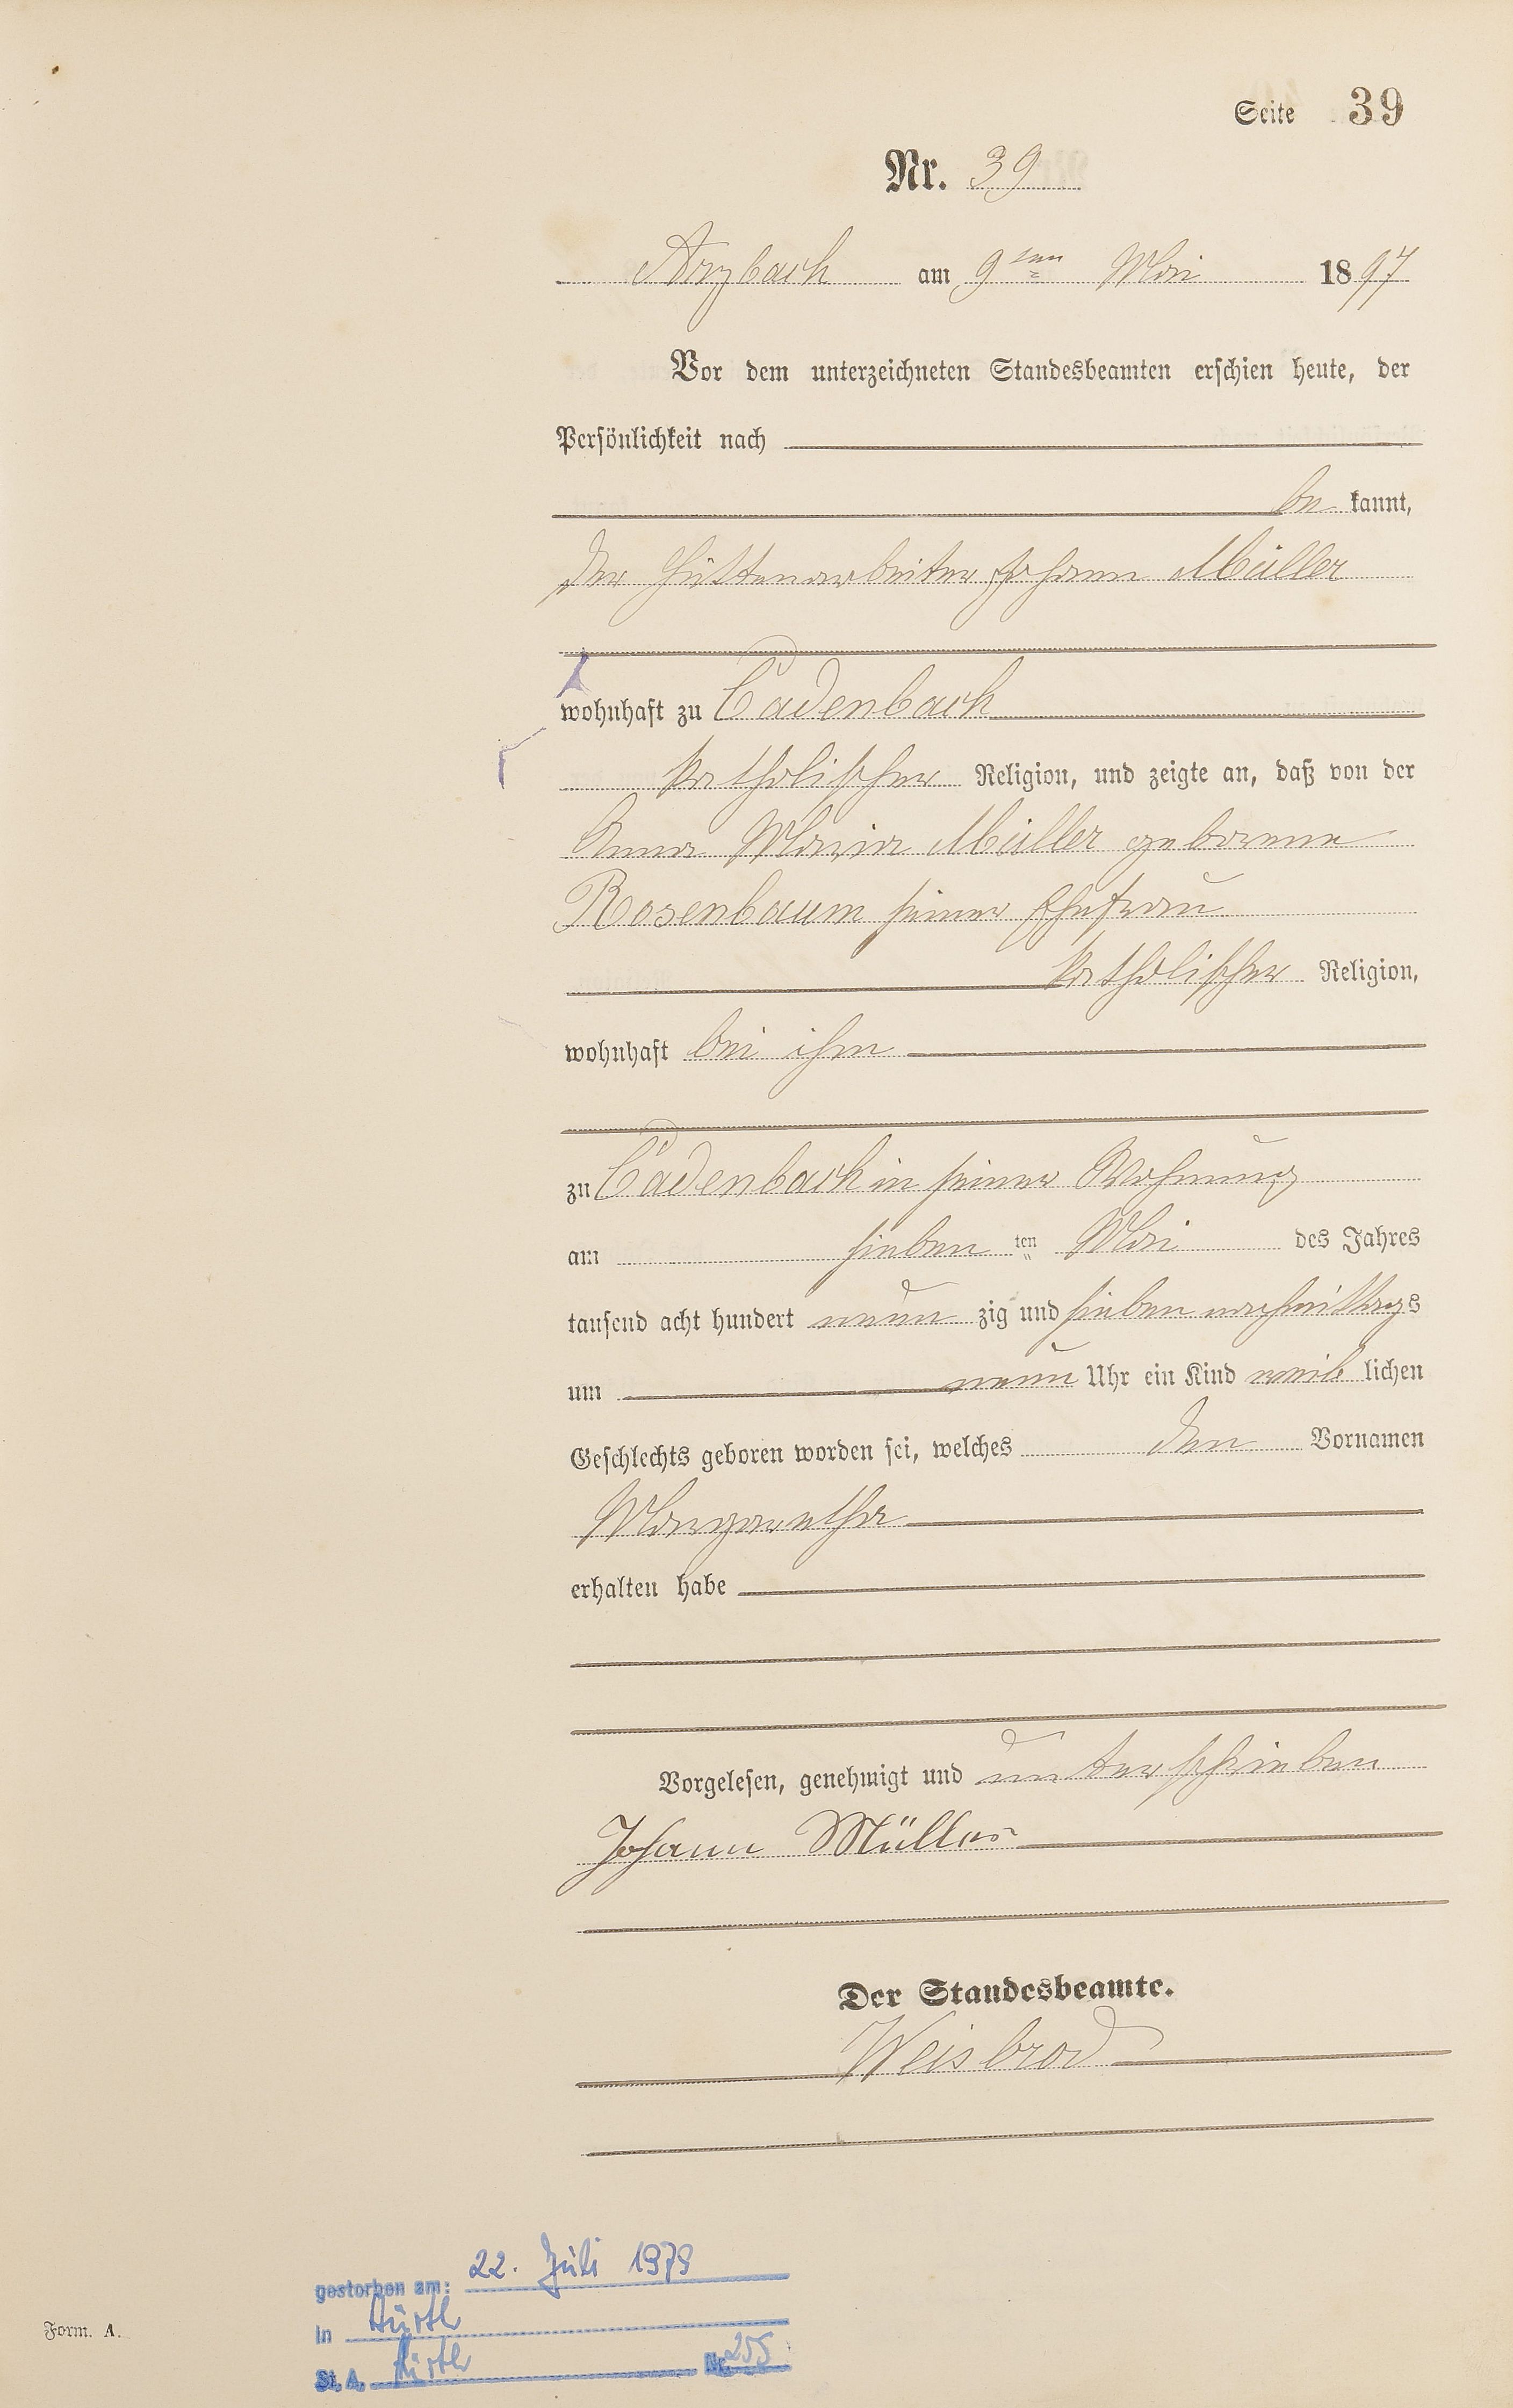 Seite 39
Nr. 39
Arzbach am 9ten Mai 1897
Vor dem unterzeichneten Standesbeamten erschien heute, der
Persönlichkeit nach
be kannt,
der Hüttenarbeiter Johann Müller
wohnhaft zu Cadenbach
katholischer Religion, und zeigte an, daß von der
Anna Maria Müller geborene
Rosenbaum seiner Ehefrau
katholischer Religion,
wohnhaft bei ihm
zu Cadenbach in seiner Wohnung
am sieben ten Mai des Jahres
tausend acht hundert neun zig und sieben nachmittags
um neun Uhr ein Kind weib lichen
Geschlechts geboren worden sei, welches den Vornamen
Margaretha
erhalten habe
Vorgelesen, genehmigt und unterschrieben
Johann Müller
Der Standesbeamte.
Weisbrod
gestorben am: 22. Juli 1979
in Hürth
St. A. Hürth Nr. 255
Form. A.